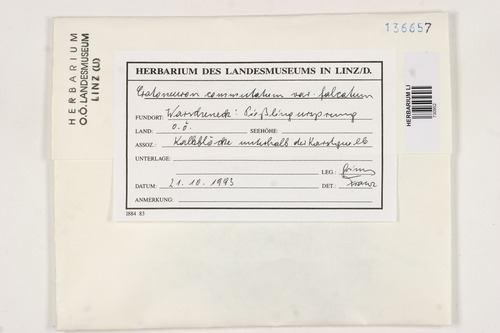 136657
HERBARIUM
O.Ö. LANDESMUSEUM
LINZ (LI)
HERBARIUM LI
HERBARIUM DES LANDESMUSEUMS IN LINZ/D.
Cratoneuron commutatum var. falcatum
FUNDORT: Warscheneck: Pießlingursprung
LAND: O.Ö. SEEHÖHE:
ASSOZ.: Kalkblöcke unterhalb der Karstquelle
UNTERLAGE:
LEG.: Grims
DATUM: 21.10.1993 DET.: Franz
ANMERKUNG:
I884 83